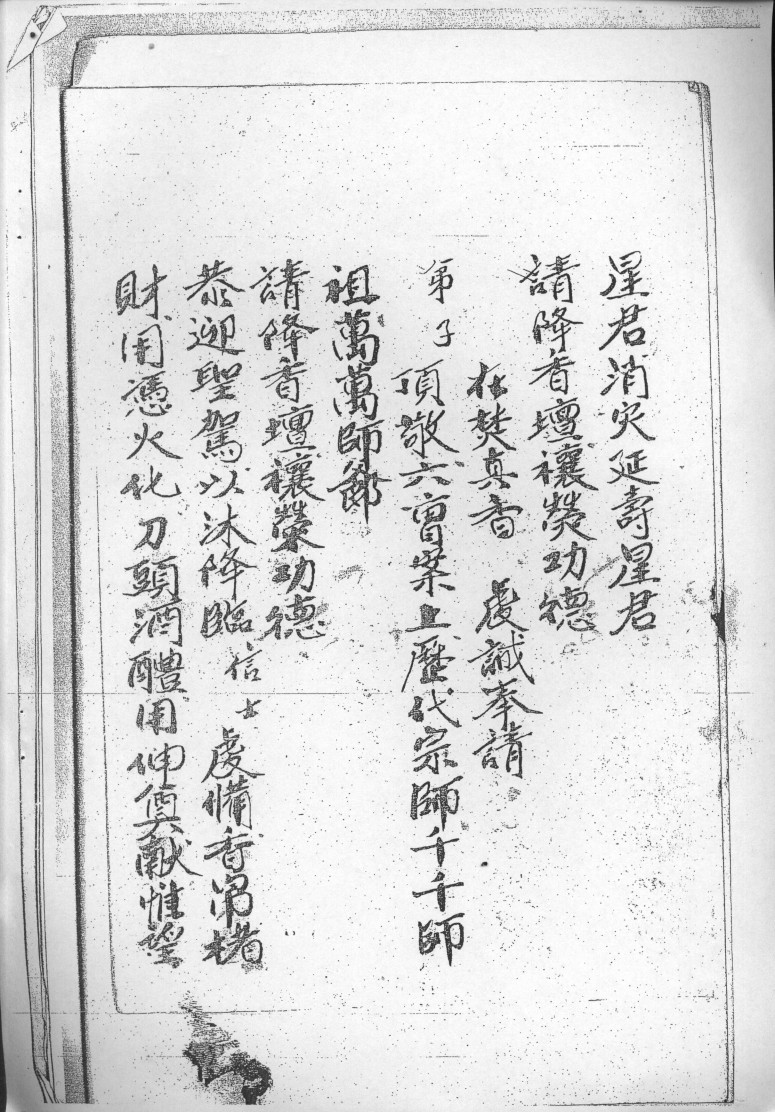 星君消灾延壽星君
請降香壇禳熒功德
在焚真香 虔誠奉請
弟子 頂敬六曹案上歷代宗師千千師
祖萬萬師爺
請降香壇禳熒功德
恭迎聖駕以沐降臨信士 虔備香帛楮
財用憑火化刀頭酒醴用伸奠献惟望